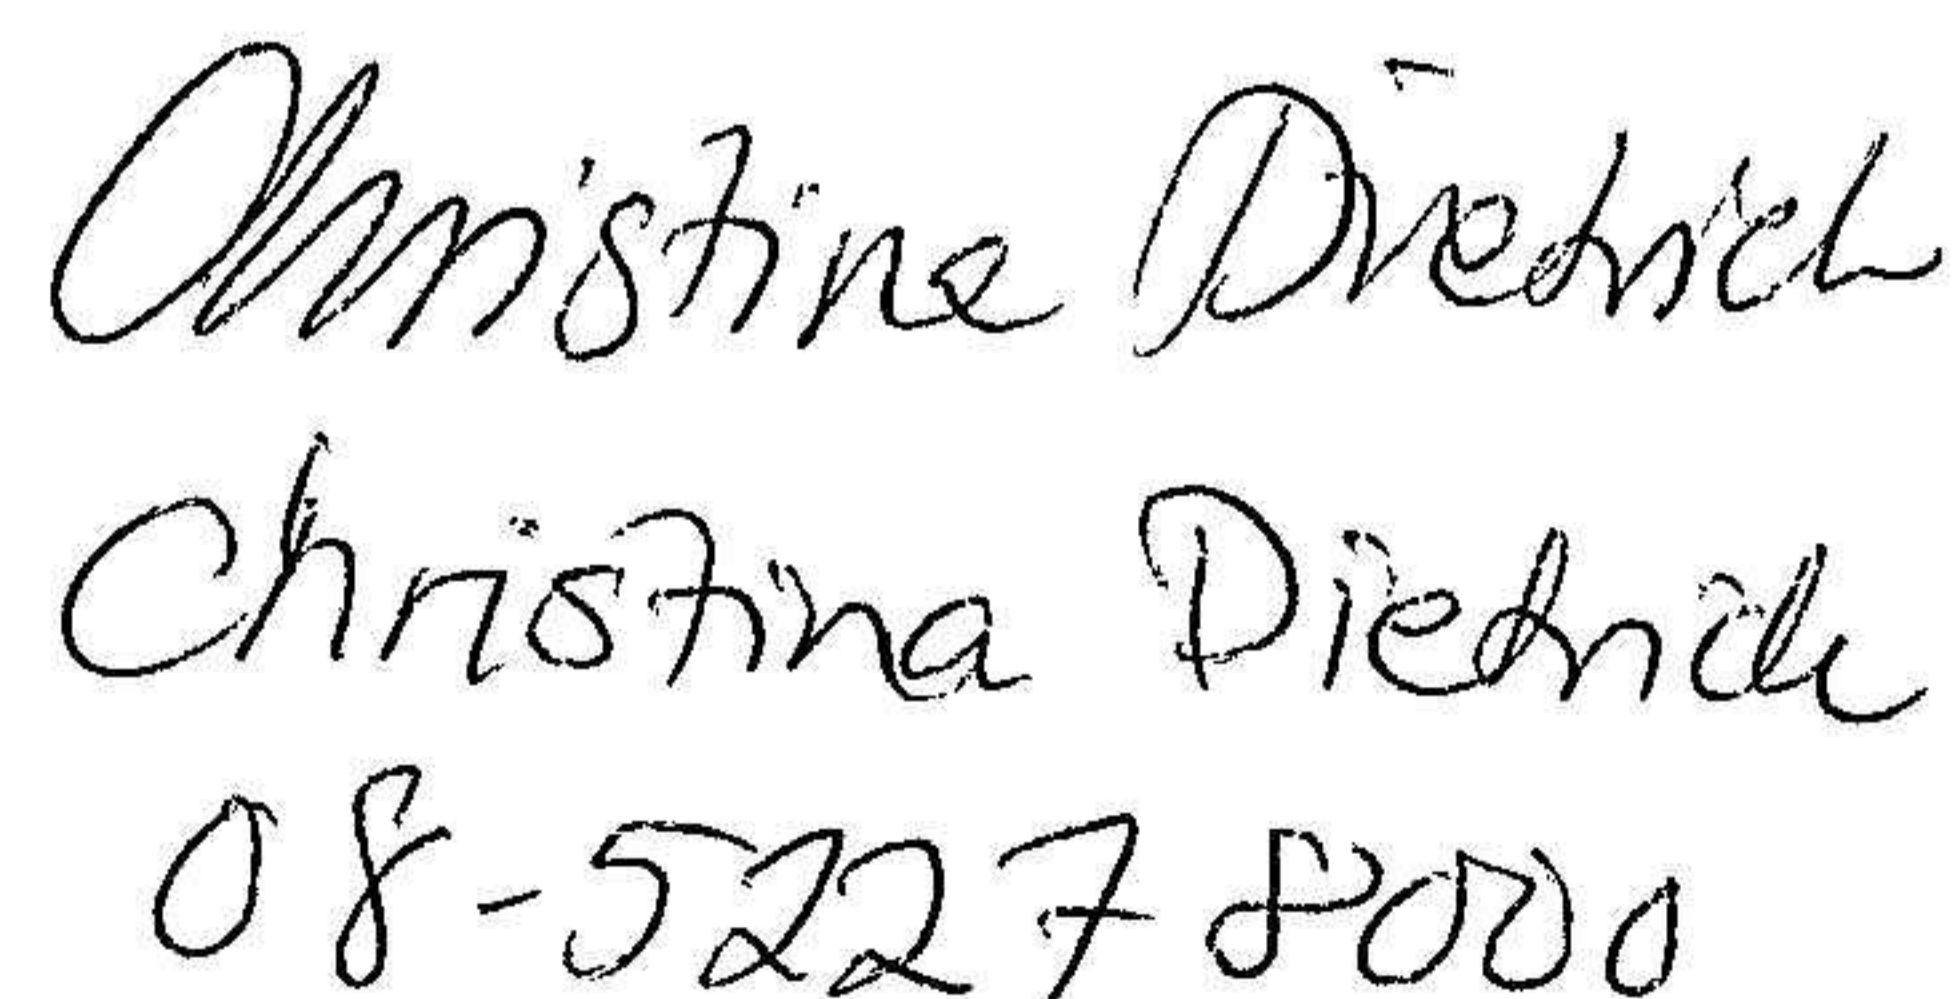 Christina Diedrich
Christina Diedrich
08-5227 8000